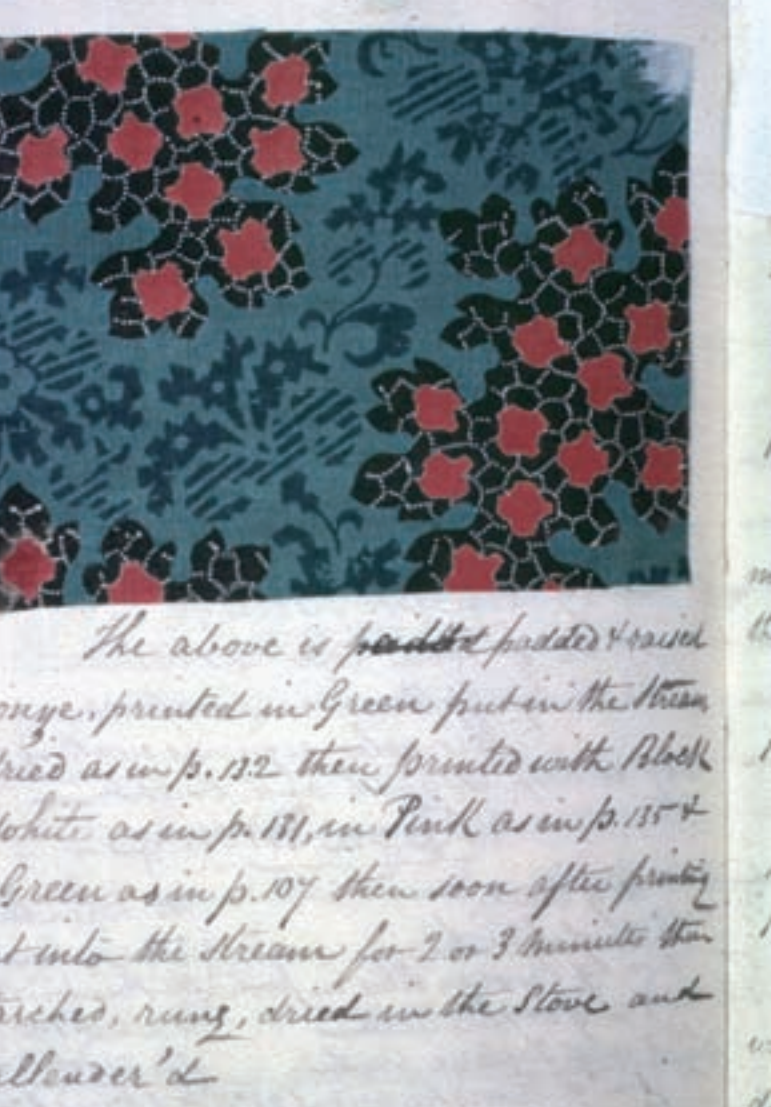 The above is padded & raised
onge, printed in Green put in the Stream
ried as in p. 132 then printed with Block
White as in p. 131, in Pink as in p. 135 &
Green as in p. 107 then soon after printing
t into the Stream for 2 or 3 minutes then
arched, rung, dried in the Stove and
allender'd